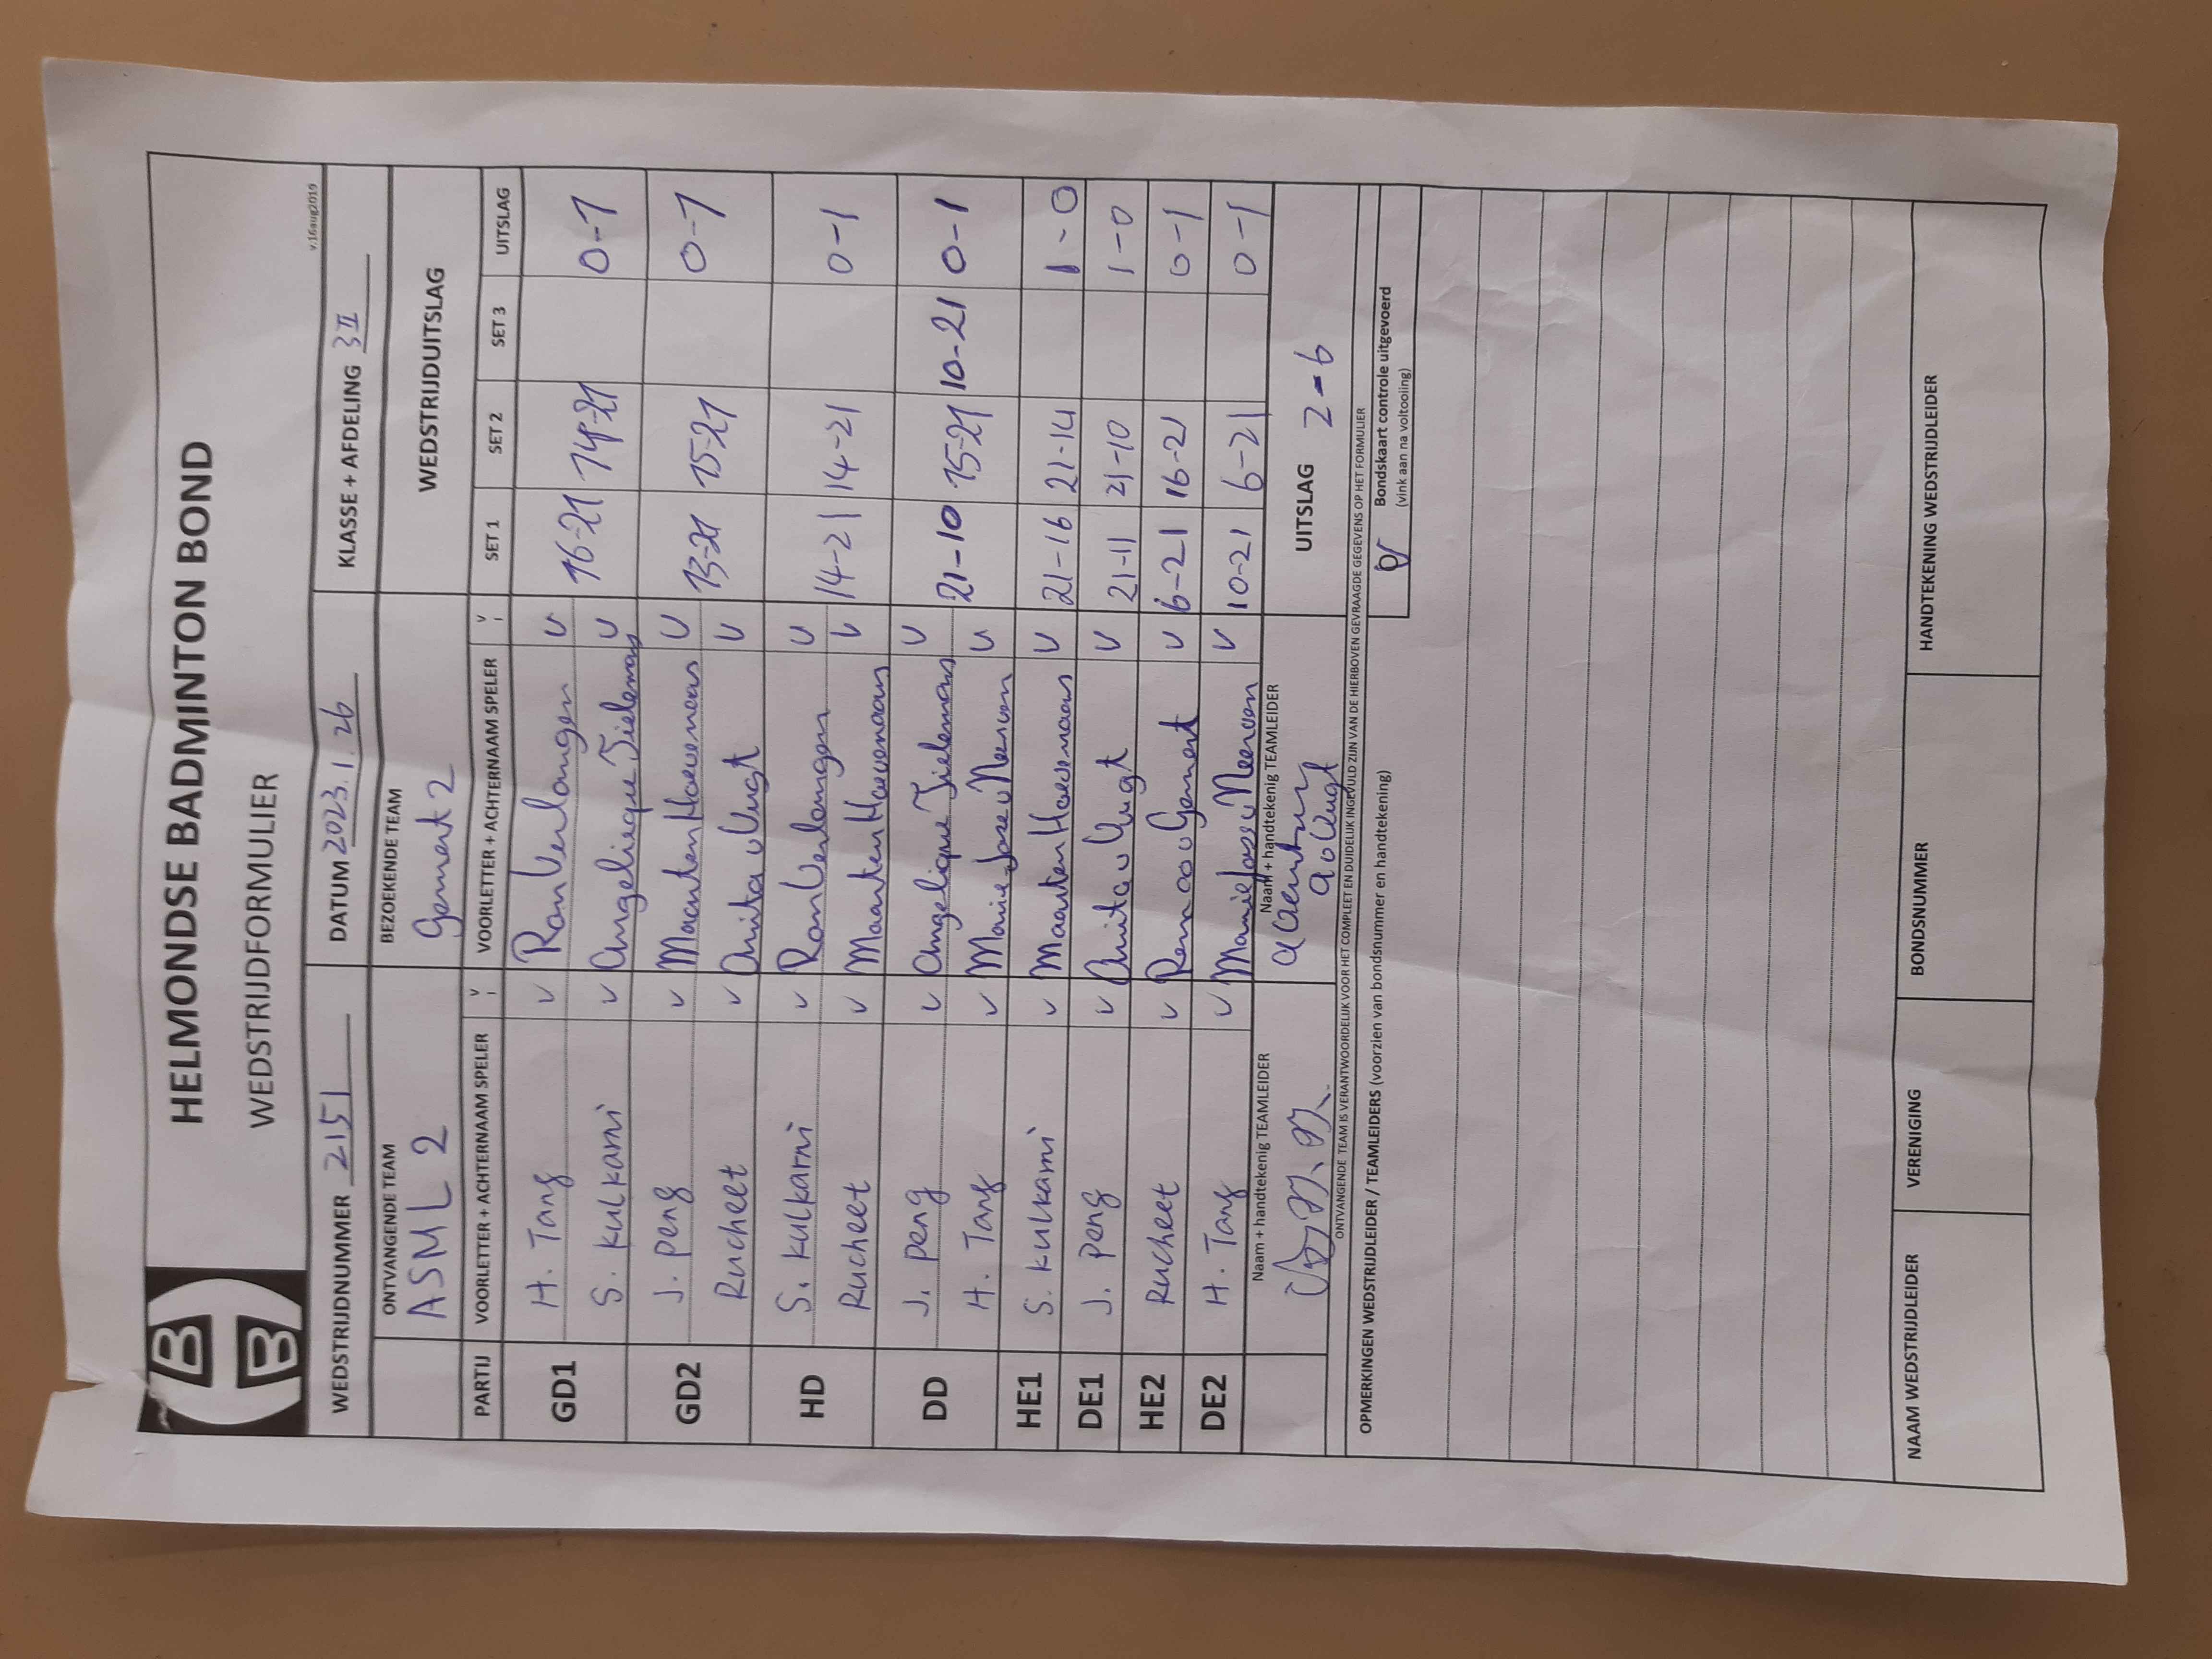 HELMONDSE BADMINTON BOND
WEDSTRIJDFORMULIER
v.16aug2019
WEDSTRIJDNUMMER 2151 DATUM 2023.1.26 KLASSE + AFDELING 3 II
ONTVANGENDE TEAM BEZOEKENDE TEAM WEDSTRIJDUITSLAG
ASML 2 Gemert 2
PARTIJ VOORLETTER + ACHTERNAAM SPELER V VOORLETTER + ACHTERNAAM SPELER V SET 1 SET 2 SET 3 UITSLAG
GD1 H. Tang v Ran Verlangen v
S. Kulkarni v Angelieque Tielemans v 16-21 14-21 0-1
GD2 J. Peng v Maarten Hoevenaars v
Rucheet v Anita v Vugt v 13-21 15-21 0-1
HD S. Kulkarni v Ran Verlangen v
Rucheet v Maarten Hoevenaars v 14-21 14-21 0-1
DD J. Peng v Angelique Tielemans v
H. Tang v Marie-Jose v Neerven v 21-10 15-21 10-21 0-1
HE1 S. Kulkarni v Maarten Hoevenaars v 21-16 21-14 1-0
DE1 J. Peng v Anita v Vugt v 21-11 21-10 1-0
HE2 Rucheet v v Gemert v 6-21 16-21 0-1
DE2 H. Tang v Marie Jose v Neerven v 10-21 6-21 0-1
Naam + handtekenig TEAMLEIDER Naam + handtekenig TEAMLEIDER UITSLAG 2-6
A v Vugt
ONTVANGENDE TEAM IS VERANTWOORDELIJK VOOR HET COMPLEET EN DUIDELIJK INGEVULD ZIJN VAN DE HIERBOVEN GEVRAAGDE GEGEVENS OP HET FORMULIER
OPMERKINGEN WEDSTRIJDLEIDER / TEAMLEIDERS (voorzien van bondsnummer en handtekening)
Bondskaart controle uitgevoerd
(vink aan na voltooiing)
NAAM WEDSTRIJDLEIDER VERENIGING BONDSNUMMER HANDTEKENING WEDSTRIJDLEIDER